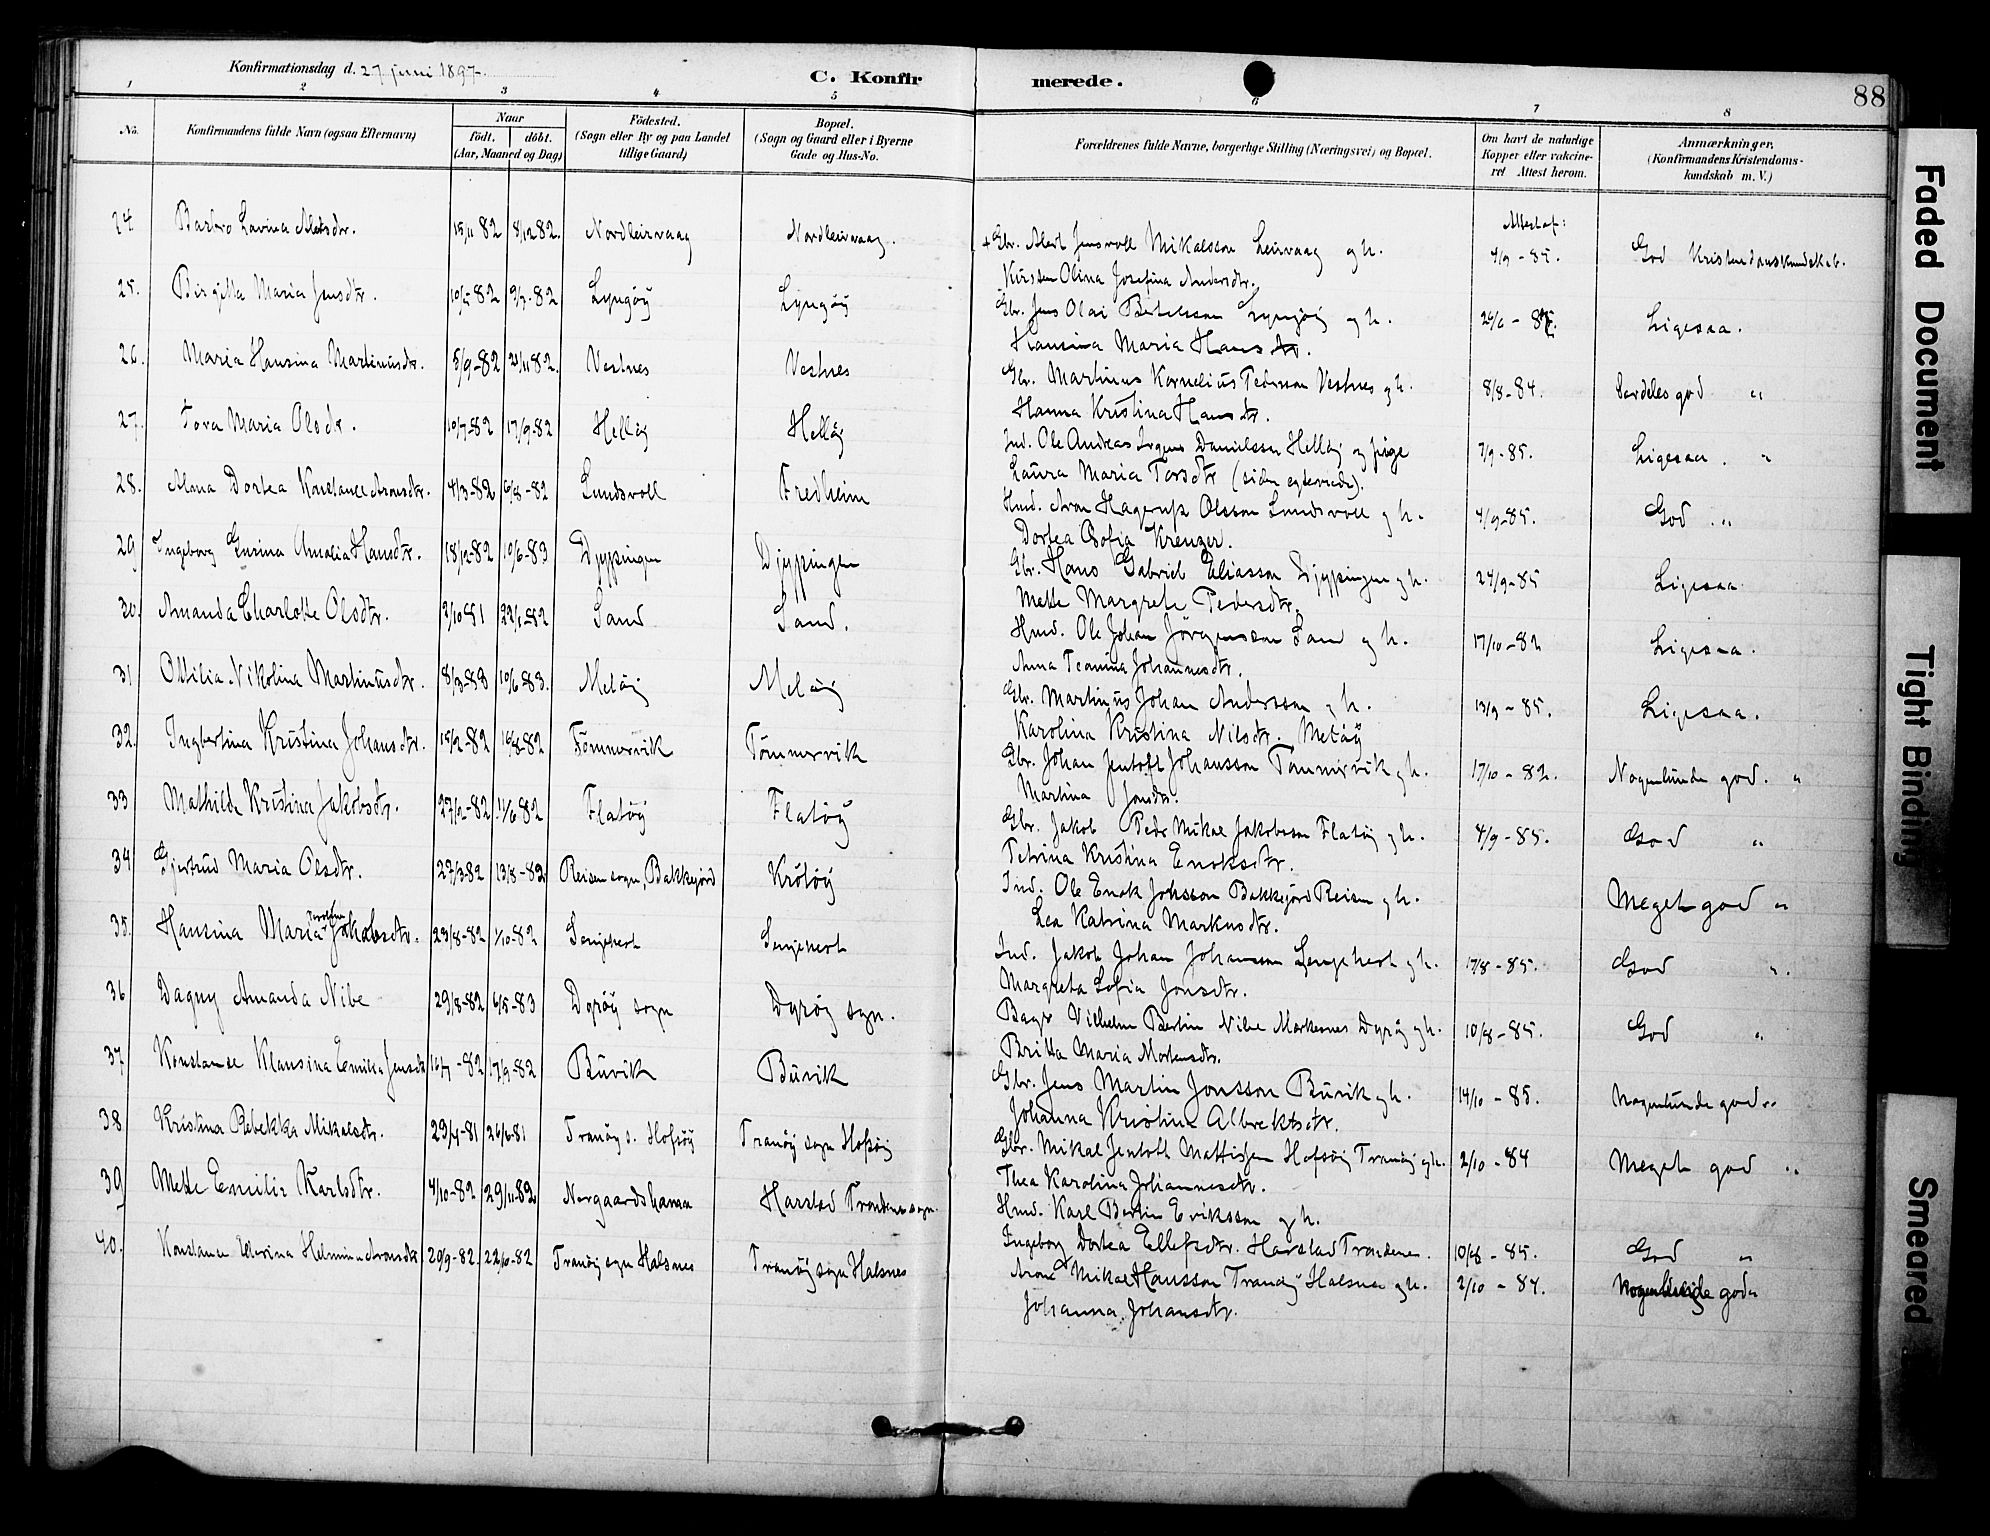 Konfirmationsdag d. 27 juni 1897.
C. Konfir merede.
88
1 2 3 4 5 6 7 8
No. Konfirmandens fulde Navn (ogsaa Efternavn) Naar født. døbt. (Aar, Maaned og Dag) Fødested. (Sogn eller By og paa Landet tillige Gaard) Bopæl. (Sogn og Gaard eller i Byerne Gade og Hus-No. Forældrenes fulde Navne, borgerlige Stilling (Næringsvei) og Bopæl. Om havt de naturlige Kopper eller vakcineret Attest herom. Anmærkninger. (Konfirmandens Kristendomskundskab m. V.)
24. Barbro Lovina 15/11 82 8/12 82. Nordleirvaag Nordleirvaag. Gbr. Jensvoll Mikalsson Leirvaag g h. Attest af: 4/9 - 85. God Kristendomskundskab.
Kirsten Olina Josefina Andersdtr.
25. Birgitta Maria Jensdtr. 10/5-82 9/7-82 Lyngöy Lyngöy Gbr. Jens Olai Bertelsson Lyngöy g h. 26/6 - Ligesaa.
Hansina Maria Hansdtr.
26. Maria Hansina Martinusdtr. 5/9-82 21/11 82. Vestnes Vestnes Gbr. Martinus Kornelius Pedersson Vestnes g h. 8/8-84. Særdeles god "
Hanna Kristina Hansdtr.
27. Tora Maria Olsdtr. 10/7-82 17/9-82 Helløy Helløy Ind. Ole Andreas Danielssen Helløy og pige 7/9-85. Ligesaa. "
Laura Maria Torsdtr (siden egteviede).
28. Alma Dortea Konstance Aronsdtr. 4/3-82 6/8-82 Lundsvoll Fredheim Hmd. Aron Hagerup Olsson Lundsvoll g h. 4/9-85. God "
Dortea Sofia Kreuzer.
29 Ingeborg Gurina Amalia Hansdtr. 18/12-82 10/6-83 Djyppingen Djyppingen Gbr. Hans Gabriel Eliasson Djyppingen g h. 24/9-85 Ligesaa
Mette Margrete Pedersdtr.
30. Amanda Charlotte Olsdtr. 2/10 81 22/1-82 Sand Sand. Hmd. Ole Johan Jörgensson Sand g h. 17/10-82 Ligesaa.
Anna Johannesdtr.
31 Ottilia Nikolina Martinusdtr. 8/3-83 10/6-83. Meløy Meløy Gbr. Martinus Johan Andersson g h. 13/9-85. Ligesaa.
Karolina Kristina Nilsdtr. Meløy
32. Ingbertina Kristina Johansdtr. 18/2-82 16/8-82 Tömmervik Tömmervik Gbr. Johan Jentoft Johansson Tömmervik g h. 17/10-82. Nogenlunde god. "
Martina Jonsdtr.
33 Mathilde Kristina Jakobsdtr. 27/2-82 11/6-82 Flatöy Flatöy Gbr. Jakob Peder Mikal Jakobsson Flatöy g h. 4/9-85. God "
Petrina Kristina Enoksdtr.
34 Gjertrud Maria Olsdtr. 27/3-82 13/8-82 Reisen sogn, Bakkejord Krötöy Ind. Ole Enok Jonsson Bakkejord Reisen g h. Meget god "
Lea Katrina Markusdtr.
35. Hansina Maria Jakobsdtr. 23/8-82 1/10-82 Senjehest Senjehest Ind. Jakob Johan Johansson Senjehest g h. 17/8-85. God ".
Margreta Sofia Jonsdtr.
36 Dagny Amanda Nibe 29/8-82 6/5-83 Dyröy sogn Dyröy sgn. Vilhelm Bertin Nibe Dyröy g h. 10/8-85. God "
Britta Maria Mortensdtr.
37 Konstanse Klausina Emilia Jensdtr 16/7-82 17/9-82 Buvik Buvik Gbr. Jens Martin Jonsson Buvik g h. 14/10-85. Nogenlunde god "
Johanna Kristina Albrektsdtr.
38 Kristina Rebekka Mikalsdtr. 29/4-81 26/6-81 Tranöy s. Hofsöy Tranöy sogn Hofsöy Gbr. Mikal Jentoft Mathissen Hofsöy Tranöy g h. 2/10-84 Meget god "
Thea Karolina Johannesdtr.
39 Mette Emilie Karlsdtr. 4/10-82 29/11-82 Norgaardshavn Harstad Trondenes sogn. Hmd. Karl Bertin Eriksson g h.
Ingeborg Dortea Ellefsdtr. Harstad Trondenes. 10/8-85. God "
40. Konstanse Elerina Helmine Aronsdtr 20/9-82. 22/10-82 Tranöy sogn Halsnes Tranöy sogn Halsnes Aron Mikal Hansson Tranöy Halsnes g h. 2/10-84. Nogenlunde god "
Johanna Johansdtr.
Faded Document
Tight Binding
Smeared